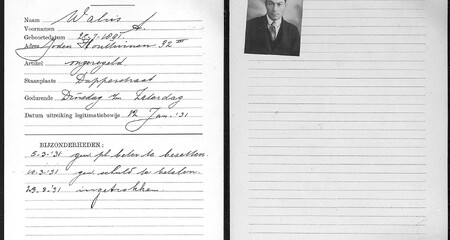 Naam Walvis
Voornamen A.
Geboortedatum 1891.
Adres Joden Houttuinen 32 III
Artikel ongeregeld
Staanplaats Dapperstraat
Gedurende Dinsdag t/m Zaterdag
Datum uitreiking legitimatiebewijs 12 Jan. '31
BIJZONDERHEDEN:
5-2-'31 gew. pl. beter te bezetten.
-3-'31 gew. schuld te betalen.
29-8-31 ingetrokken.